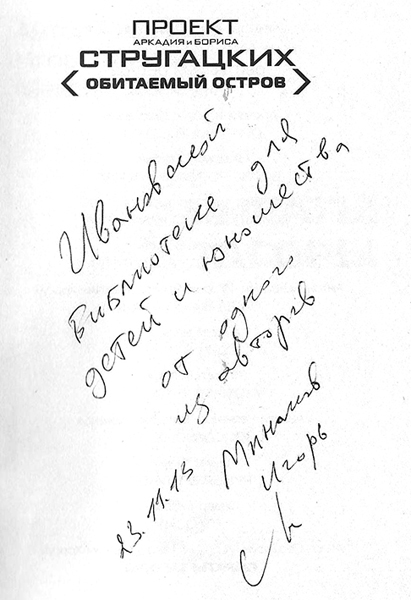 ПРОЕКТ
АРКАДИЯ и БОРИСА
СТРУГАЦКИХ
ОБИТАЕМЫЙ ОСТРОВ
Ивановской
Библиотеке для
детей и юношества
от одного
из авторов
23.11.13 Минаков
Игорь